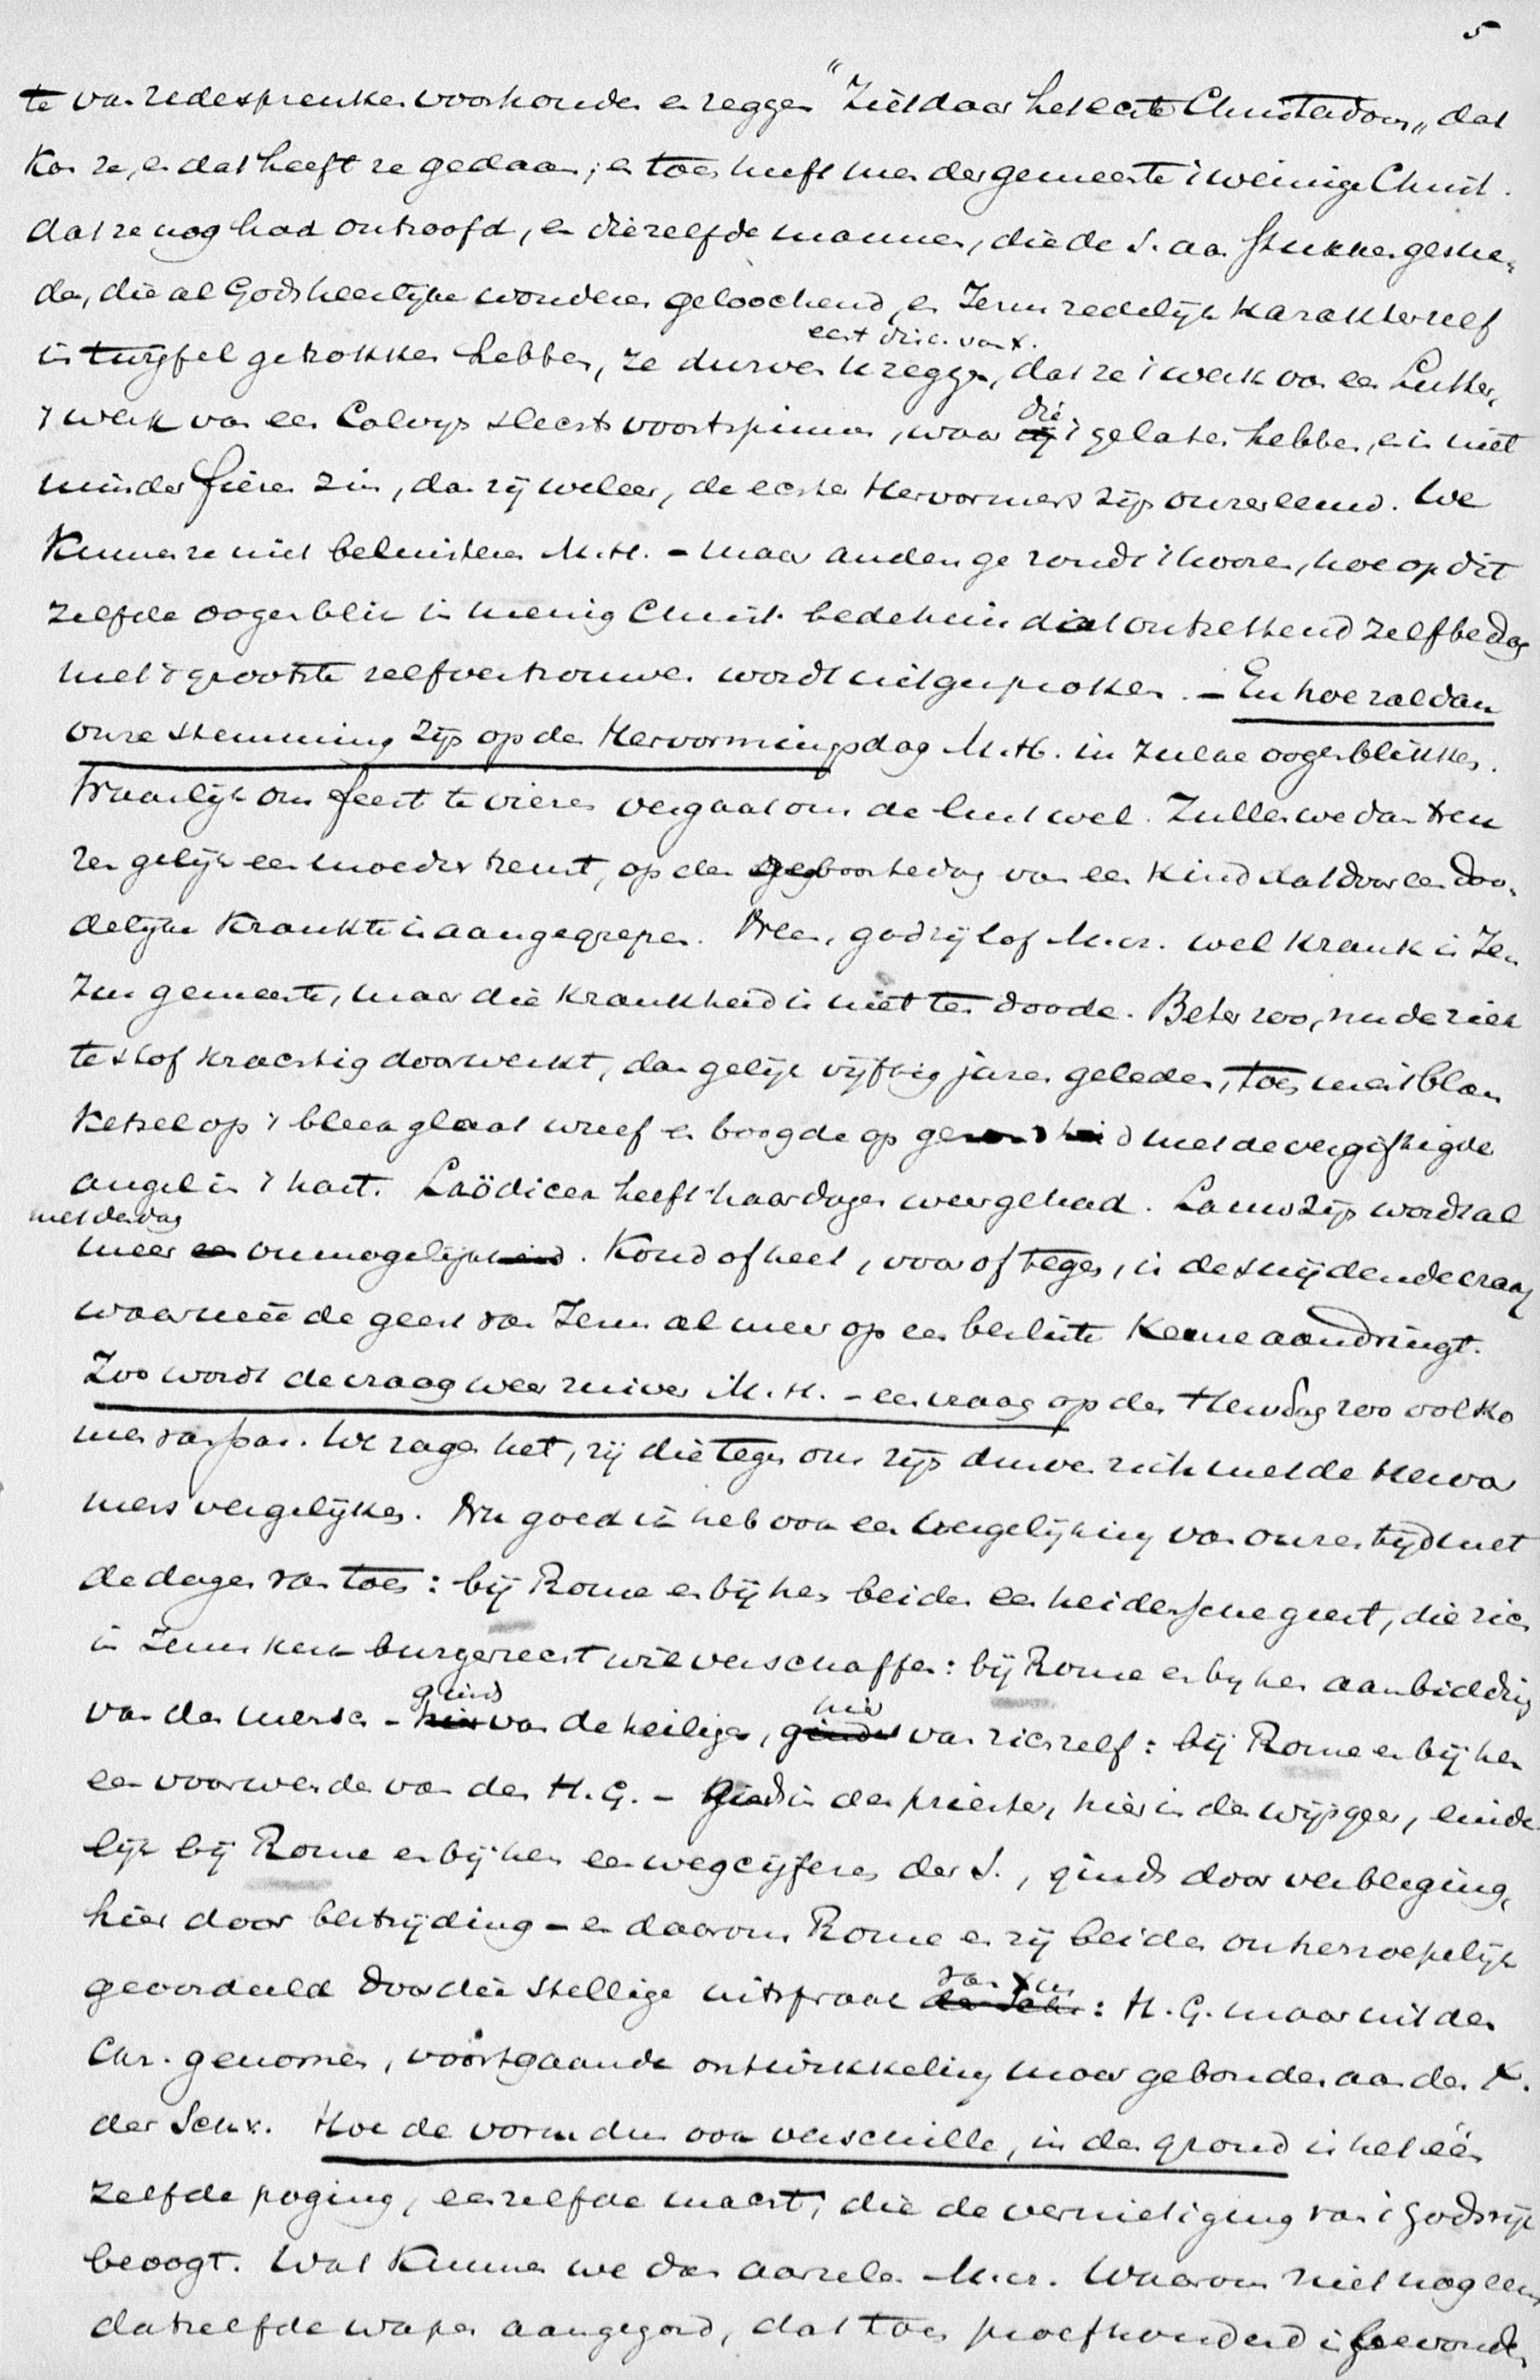 5
te van redesprenken voorhouden en zeggen "Ziet daar het echte Christendom,, dat
kon ze, en dat heeft ze gedaan; en toen heeft men der gemeente 't weinige Christ.
dat ze nog had ontroofd, en diezelfde mannen, die de S. aan stukken gesne-
den, die al Gods heerlijke wonderen geloochend, en Jezus zedelijk karakter zelf
in twijfel getrokken hebben, ze durven te zeggen, echt disc. van X. dat ze 't werk van een Luther,
't werk van een Calvijn slechts voortspinnen, waar die 't gelaten hebben, en in niet
minder fieren zin, dan zij weleer, de echte Hervormers zijn onzer eeuw. We
kunnen ze niet beluisteren M.H. - maar anders ge zoudt 't hooren, hoe op dit
zelfde oogenblik in menig Christ. bedehuis dat ontzettend zelfbedrog
met 't grootste zelfvertrouwen wordt uitgesproken. - En hoe zal dan
onze stemming zijn op den Hervormingsdag M.H. in zulke oogenblikken.
Waarlijk om feest te vieren vergaat ons de lust wel. Zullen we dan treu
ren gelijk een moeder treurt, op den geboortedag van een kind dat door een doo-
delijke krankte is aangegrepen. Neen, god zij lof M.cr. wel krank is Je-
zus gemeente, maar die krankheid is niet ten doode. Beter zoo, nu de ziek
testof krachtig doorwerkt, dan gelijk vijftig jaren geleden, toen men 't blan
ketsel op 't bleek gelaat wreef en boogde op gezondheid met de vergiftigde
angel in 't hart. Laödicea heeft haar dagen weer gehad. Lauw zijn wordt al
meer met den dag onmogelijk. Koud of heet, voor of tegen, is de snijdende vraag
waarmeê de geest van Jezus al meer op een besliste keuze aandringt.
Zoo wordt de vraag weer zuiver M.H. - een vraag op den Hervdag zoo volko
men van pas. We zagen het, zij die tegen ons zijn durven zich met de Hervor
mers vergelijken. Nu goed ik heb ook een vergelijking van onzen tijd met
de dagen van toen: bij Rome en bij hen beiden een heidensche geest, die zich
in Jezus kerk burgerrecht wil verschaffen: bij Rome en by hen aanbidding
van den mensch - ginds van de heiligen, hier van zichzelf: bij Rome en bij hen
een voorwenden van den H.G. - Ginds in den priester, hier in den wijsgeer, einde
lijk bij Rome en bij hen een wegcijferen der S., ginds door verberging,
hier door bestrijding - en daarom Rome en zij beiden onherroepelijk
geoordeeld door die stellige uitspraak van Xus: H.G. maar uit den
Chr. genomen, voortgaande ontwikkeling maar gebonden aan den X.
der Schr. Hoe de vorm dus ook verschille, in den grond is het één
zelfde poging, een zelfde macht, die de vernietiging van 't Godsrijk
beoogt. Wat kunnen we dan aarzelen M.cr. Waarom niet nog eens
datzelfde wapen aangegord, dat toen proefhoudend is gevonden